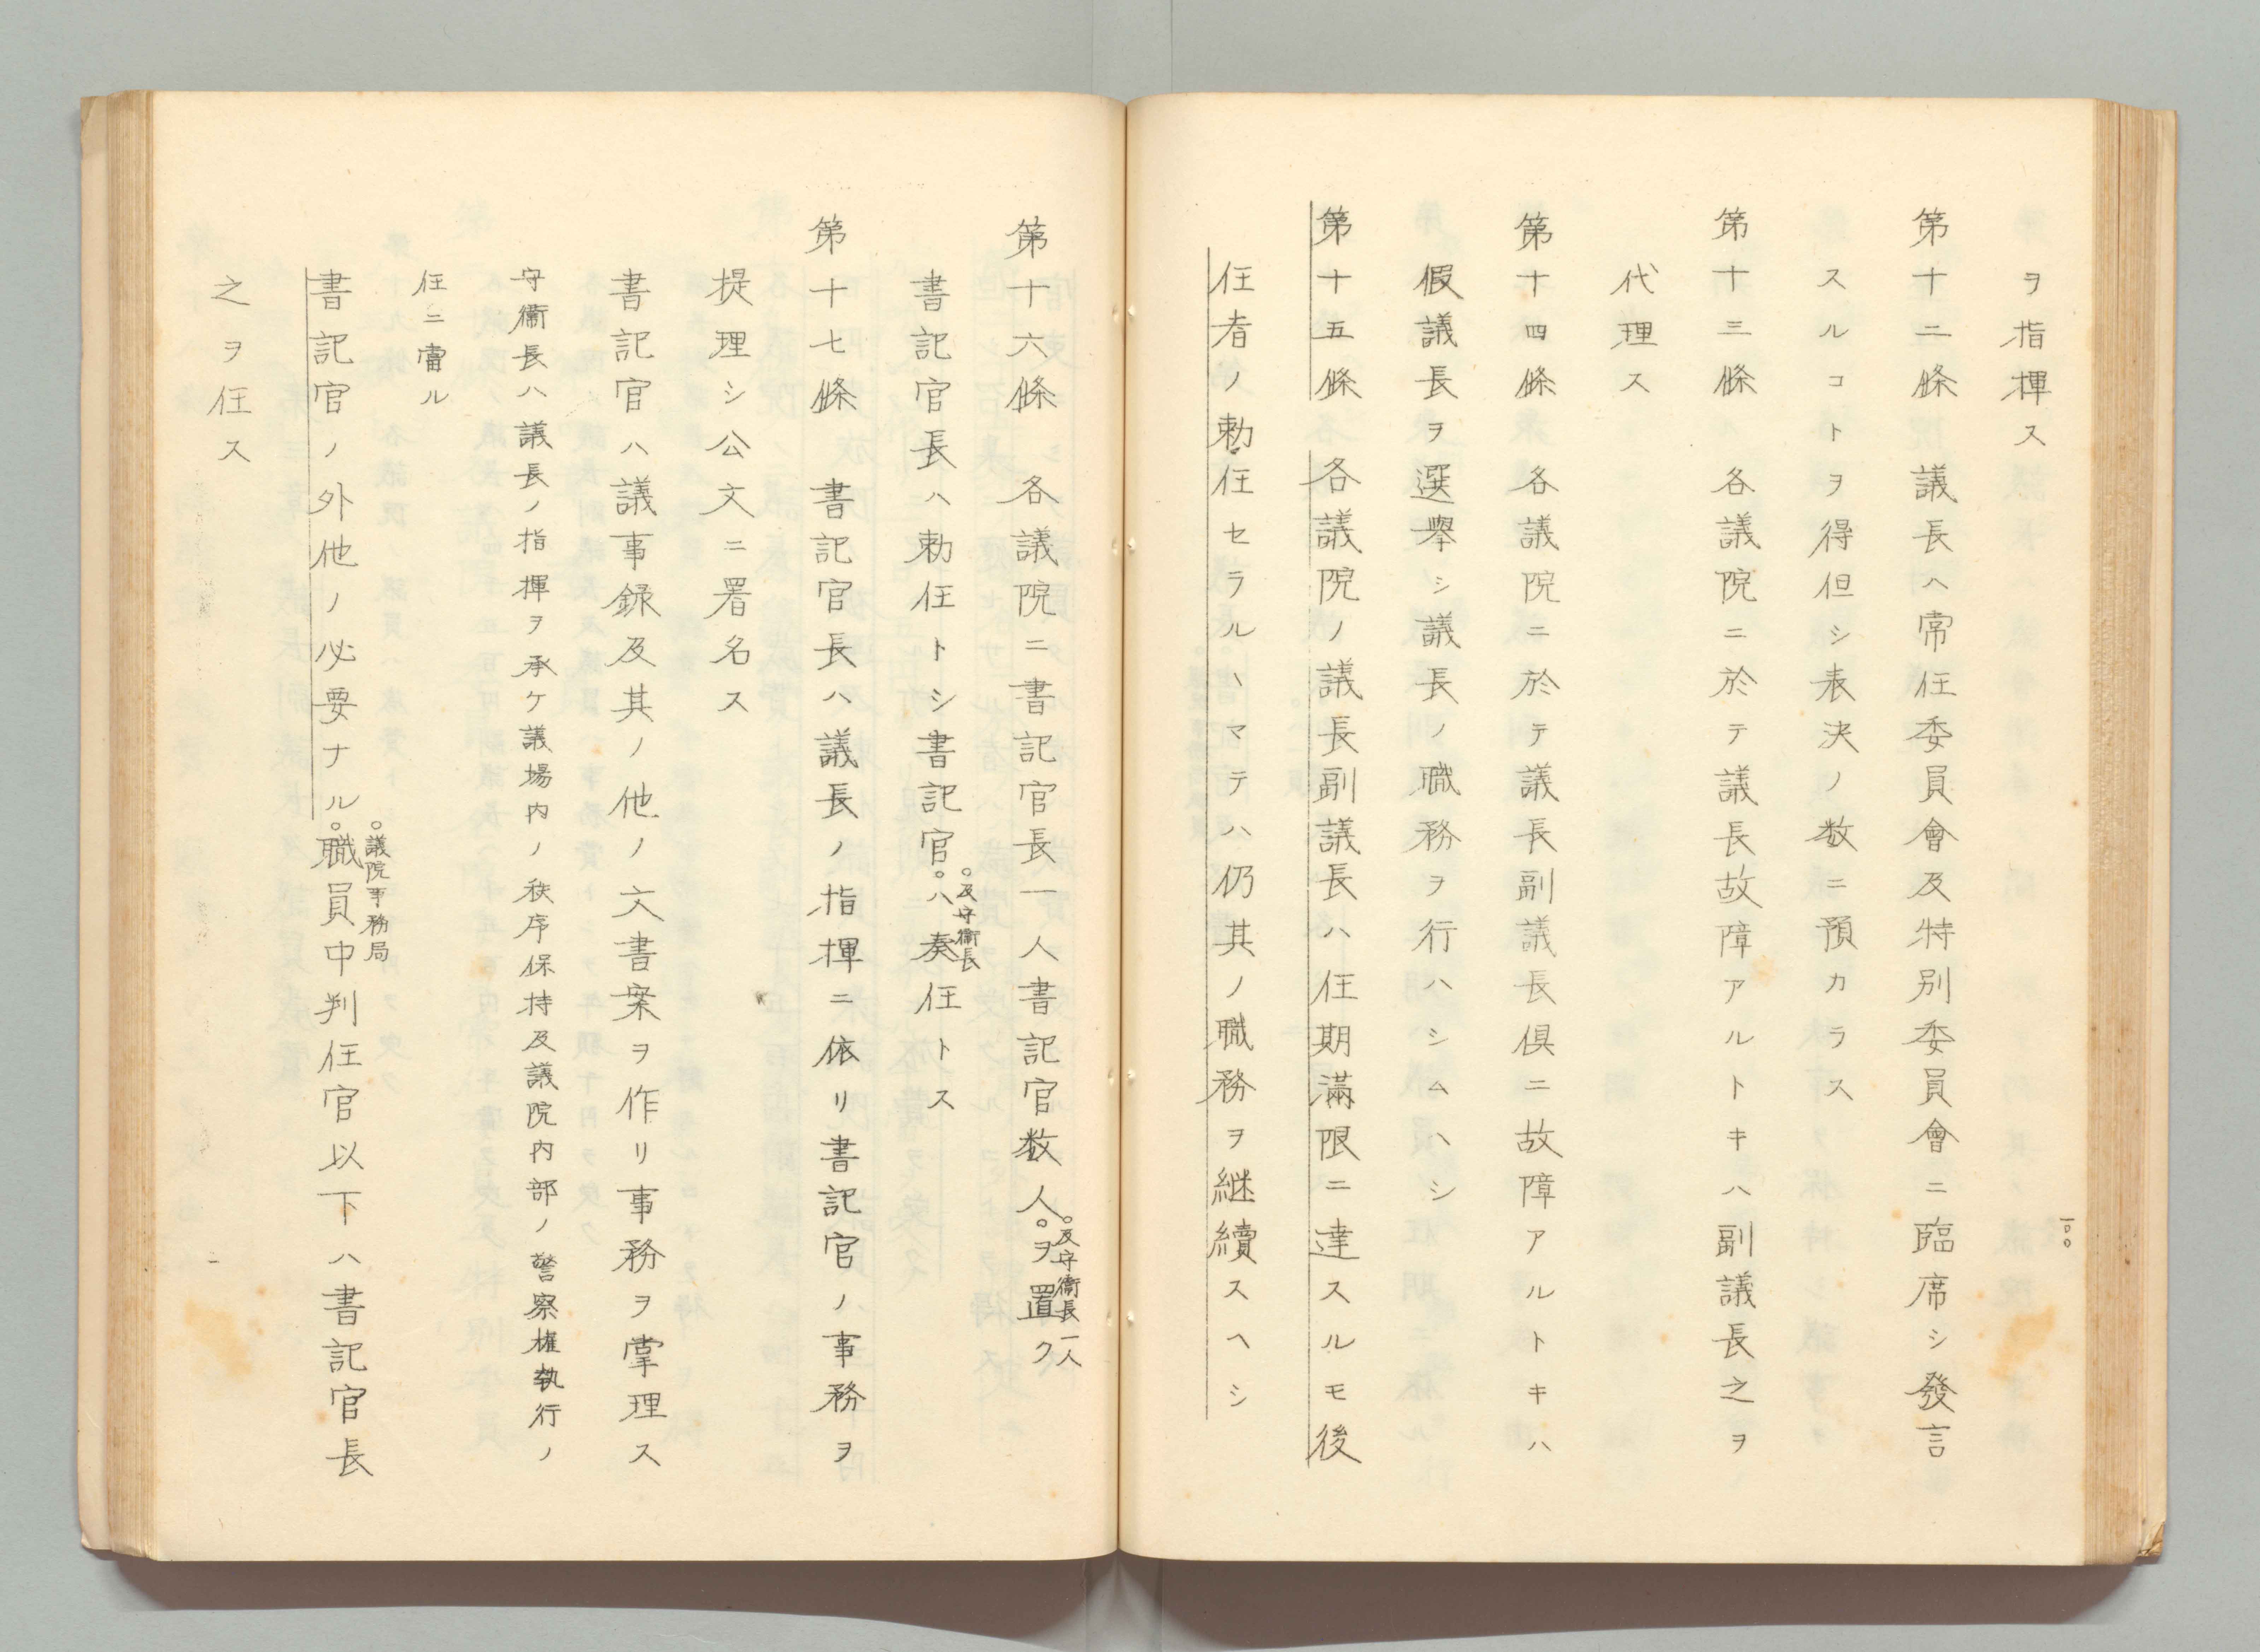 ヲ指揮ス
第十二條　議長ハ常任委員會及特別委員會ニ臨席シ發言
スルコトヲ得但シ表決ノ数ニ預カラス
第十三條　各議院ニ於テ議長故障アルトキハ副議長之ヲ
代理ス
第十四條　各議院ニ於テ議長副議長倶ニ故障アルトキハ
假議長ヲ選舉シ議長ノ職務ヲ行ハシムヘシ
第十五條　各議院ノ議長副議長ハ任期滿限ニ達スルモ後
任者ノ勅任セラルヽマテハ仍其ノ職務ヲ継續スヘシ
一〇〇
第十六條　各議院ニ書記官長一人書記官数人。ヲ置ク
。及守衞長一人
書記官長ハ勅任トシ書記官。ハ奏任トス
。及守衞長
第十七條　書記官長ハ議長ノ指揮ニ依リ書記官ノ事務ヲ
提理シ公文ニ署名ス
書記官ハ議事録及其ノ他ノ文書案ヲ作リ事務ヲ掌理ス
守衞長ハ議長ノ指揮ヲ承ケ議場内ノ秩序保持及議院内部ノ警察権執行ノ
任ニ當ル
。議院事務局
書記官ノ外他ノ必要ナル。職員中判任官以下ハ書記官長
之ヲ任ス